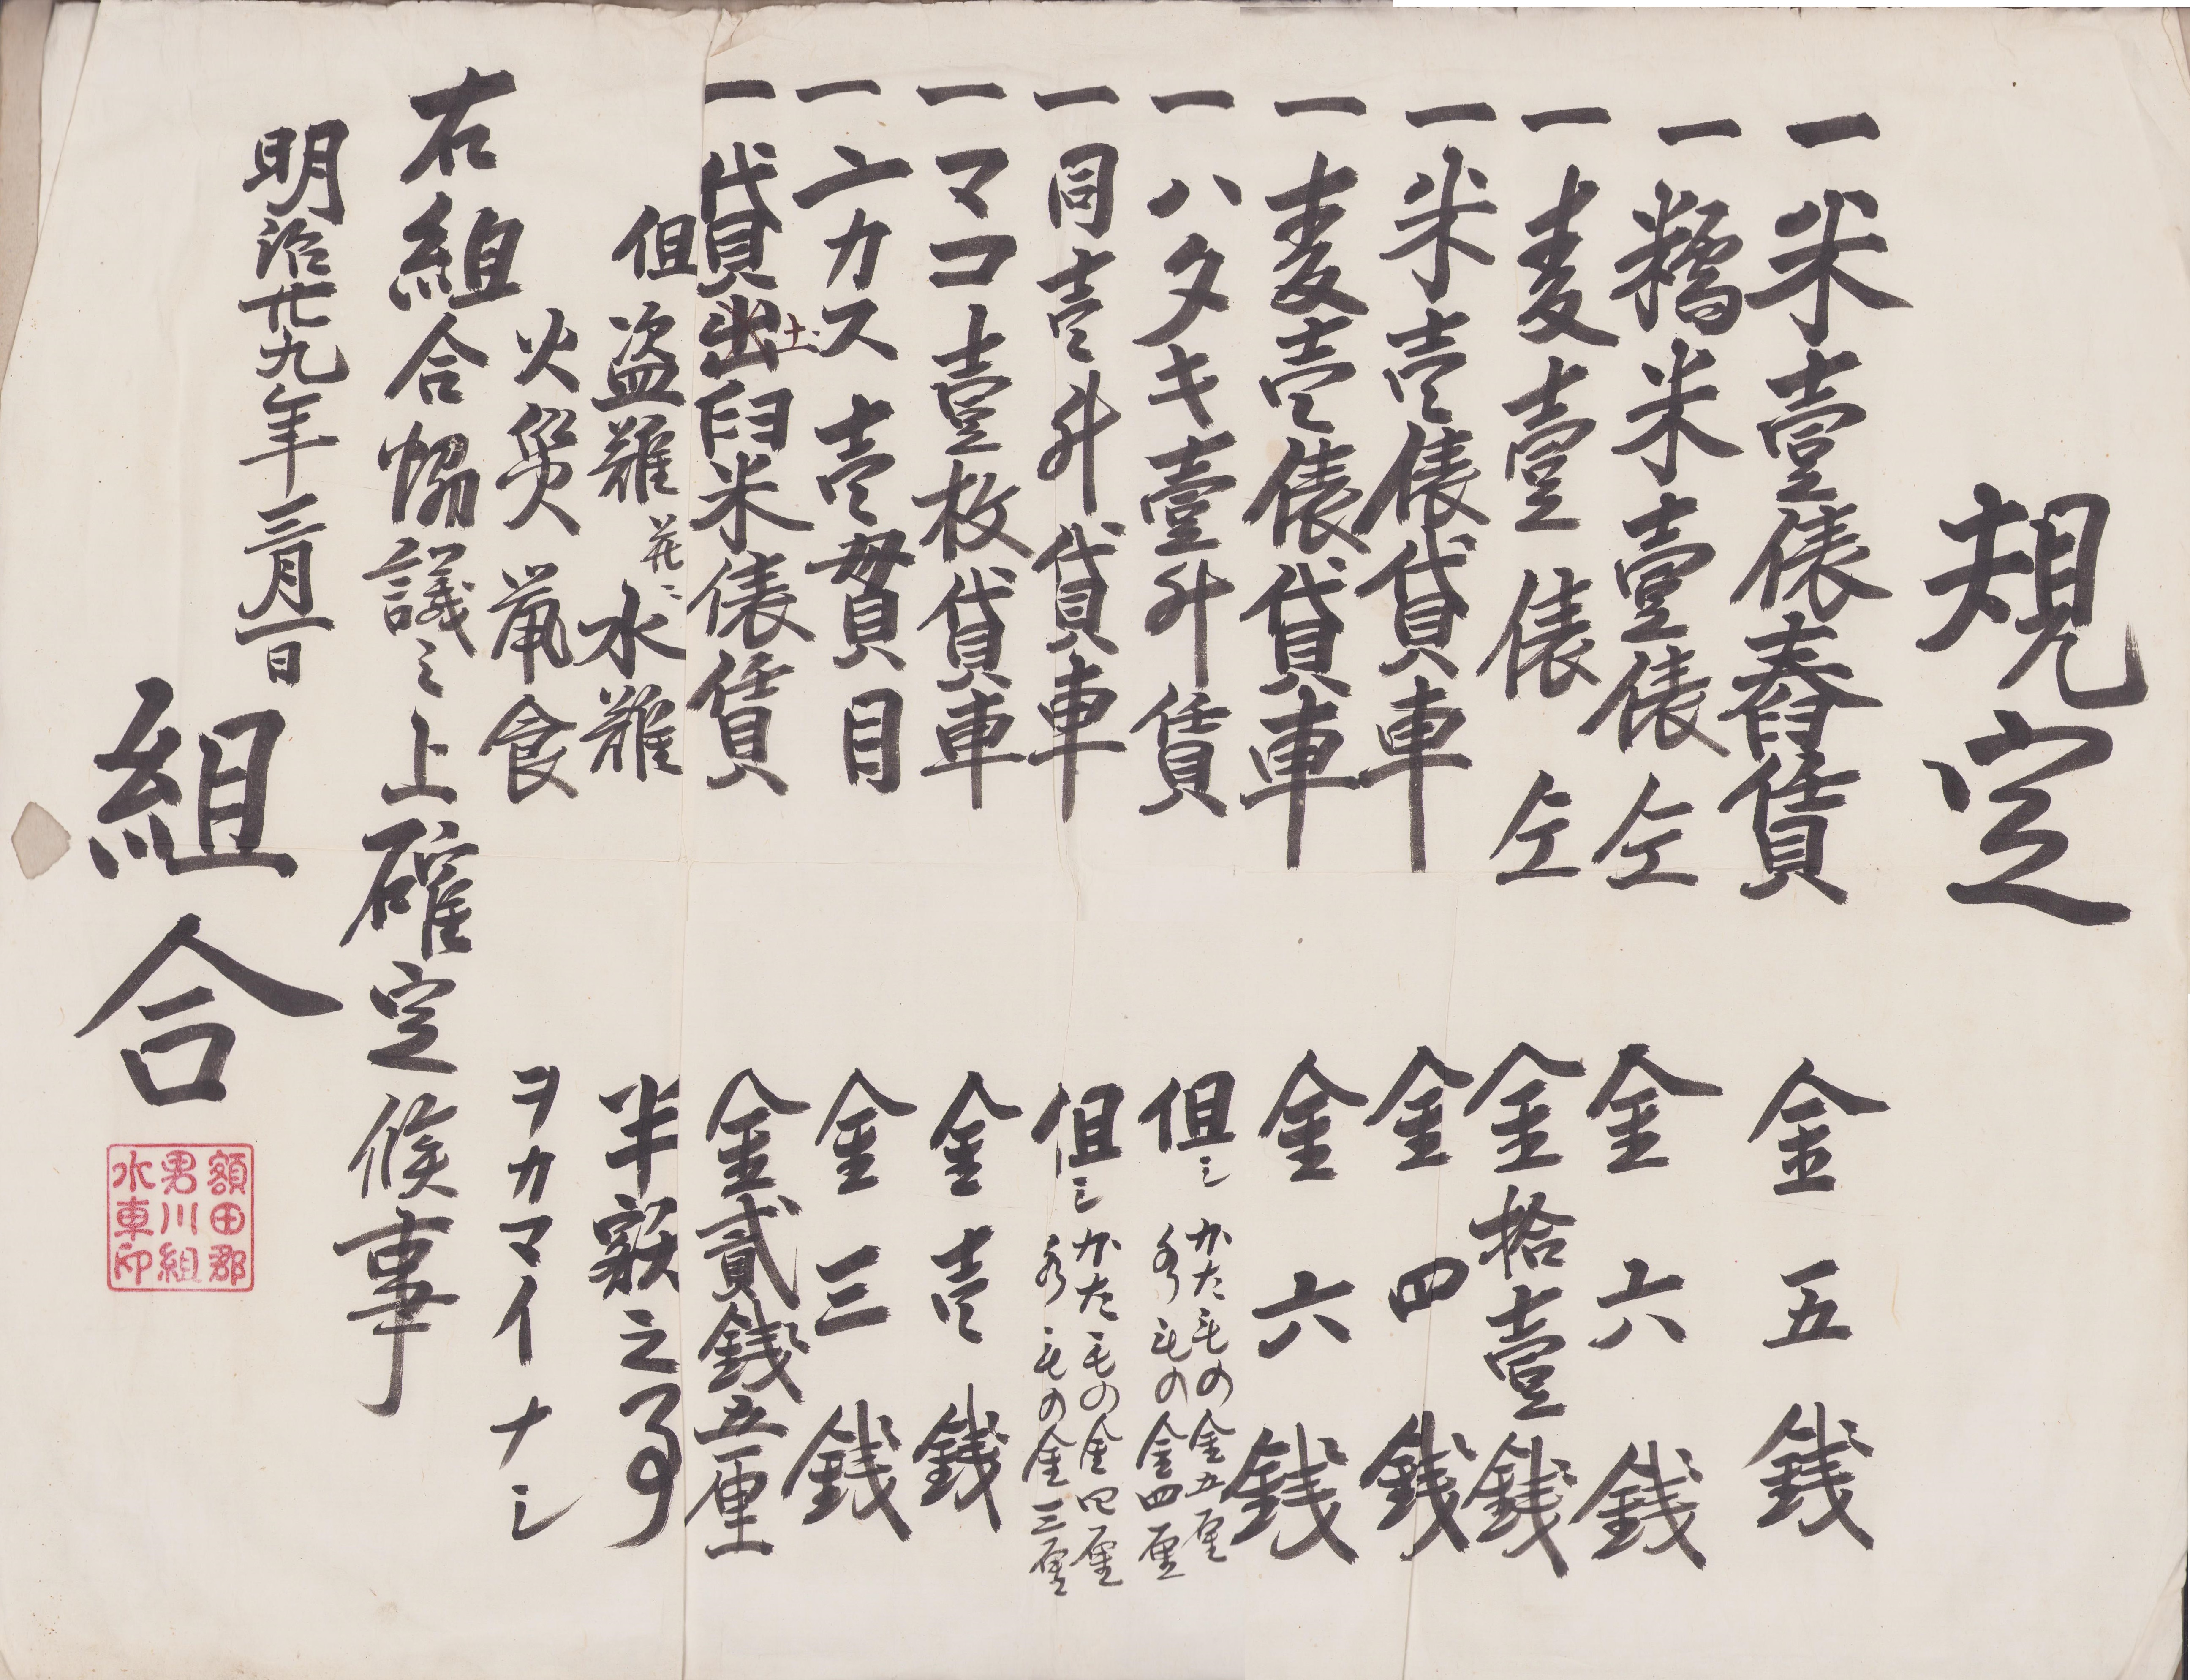 規定
一米壹俵舂賃 金五銭
一糯米壹俵仝 金六銭
一麦壹俵仝 金拾壹銭
一米壱俵貸車 金四銭
一麦壱俵貸車 金六銭
一ハタキ壹升賃 但シ かたモの金五厘
もの金四厘
一同壱升貸車 但シ かたモの金四厘
もの金三厘
一マコ壹枚貸車 金壱銭
一ヌカス壱貫目 金三銭
一貸出臼米俵賃 金貳銭五厘
土
但盗難并ニ水難 半額之事
火災鼡食 ヲカマイナシ
右組合協議之上確定候事
明治廿九年三月一日
組合
額田郡
男川組
水車印